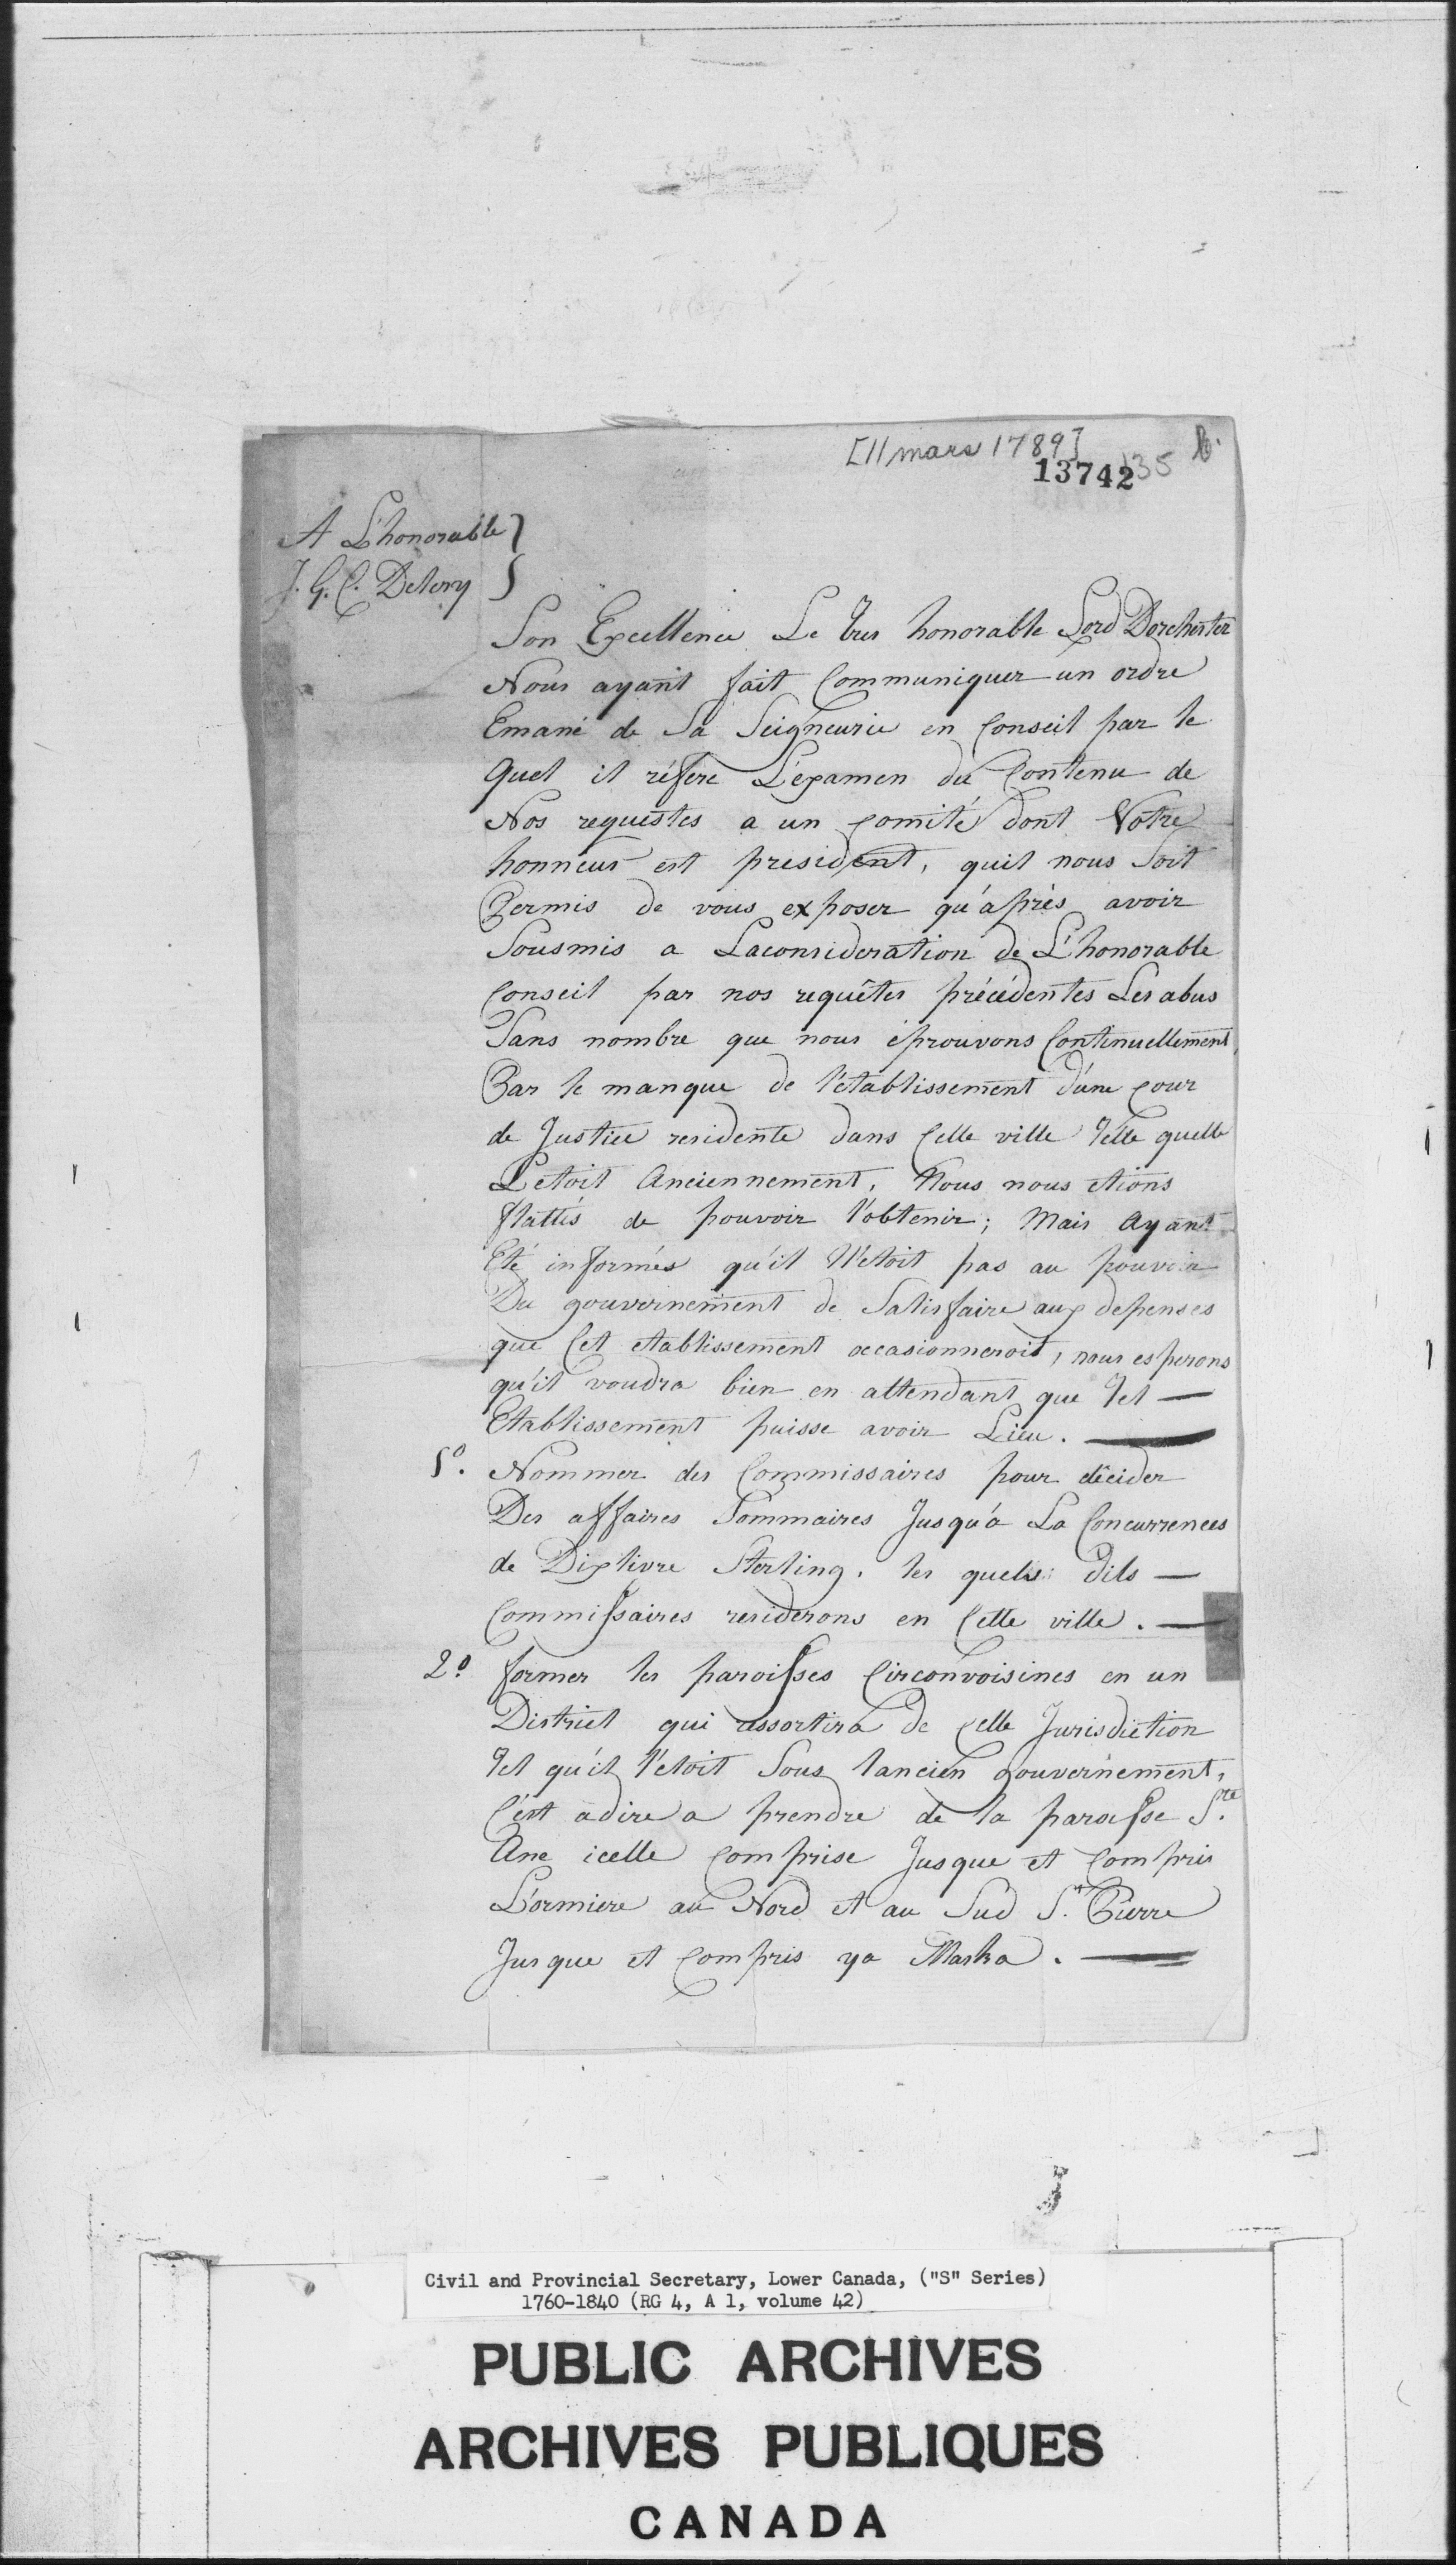 [11 mars 1789]
13742 35 B.
A L'honorable
J. G. C. Delery
Son Excellence Le tres honorable Lord Dorchester
Nous ayant fait Communiquer un ordre
Emané de Sa Seigneurie en Conseil par le
Quel il réfere L'examen du Contenu de
Nos requestes a un comité dont Votre
honneur est president, quil nous Soit
Permis de vous exposer qu'aprés avoir
Sousmis a Laconsideration de L'honorable
Conseil par nos requêtes précédentes Les abus
Sans nombre que nous éprouvons Continuellement,
Par le manque de l'établissement d'une cour
de Justice residente dans Cette ville telle quelle
L'etoit Anciennement, Nous nous etions
flattés de pouvoir l'obtenir; Mais Ayant
Eté informés qu'il N'etoit pas au pouvoir
Du gouvernement de Satisfaire aux depenses
que Cet etablissement occasionneroit, nous esperons
qu'il voudra bien en attendant que Tel —
Etablissement puisse avoir Lieu. —
1º. Nommer des Commissaires pour décider
Des affaires Sommaires Jusqu'a La Concurrences
de Dix livre Sterling. les quels dits —
Commissaires residerons en Cette ville. —
2º. former les paroisses Circonvoisines en un
District qui assortira de cette Jurisdiction
Tel qu'il l'etoit Sous lancien gouvernement,
C'est adire a prendre de la paroisse Ste.
Ane icelle comprise Jusque et compris
L'ormiere au Nord et au Sud St. Pierre
Jusque et compris ya Maska. —
Civil and Provincial Secretary, Lower Canada, ("S" Series)
1760-1840 (RG 4, A 1, volume 42)
PUBLIC ARCHIVES
ARCHIVES PUBLIQUES
CANADA